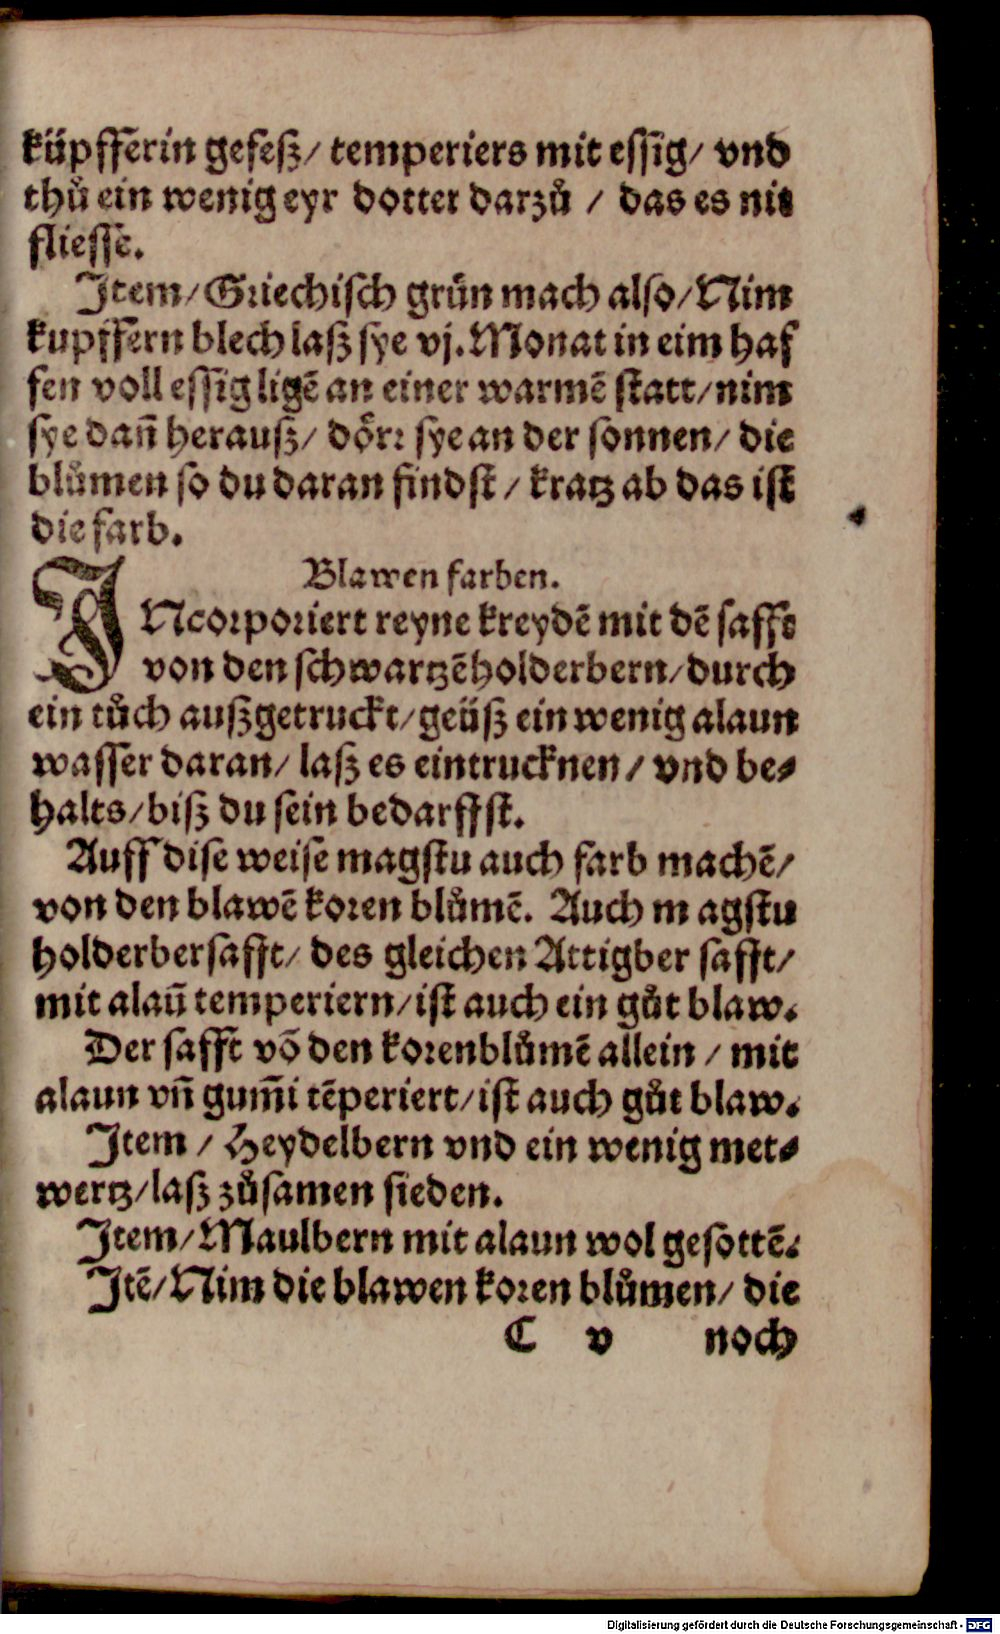 küpfferin gefeſz/ temperiers mit eſſig/ vnd
thuͦ ein wenig eyr dotter darzuͦ / das es nit
flieſſe.
Item/Griechiſch gruͤn mach alſo/Nim
kupffern blech laſz ſye vj. Monat in eim haf
fen voll eſſig ligẽ an einer warmẽ ſtatt/nim
ſye dañ herauſz/ doͤrr ſye an der ſonnen/ die
bluͦmen ſo du daran findſt / kratz ab das iſt
die farb.
Blawen farben.
INcorporiert reyne kreydẽ mit dẽ ſafft
von den ſchwartzẽ holderbern/durch
ein tuͦch auſzgetruckt/geüſz ein wenig alaun
waſſer daran/ laſz es eintrucknen/ vnd be⸗
halts/biſz du ſein bedarffſt.
Auff diſe weiſe magſtu auch farb machẽ/
von den blawẽ koren bluͦmẽ. Auch m agſtu
holderberſafft/ des gleichen Attigber ſafft/
mit alaũ temperiern/iſt auch ein guͦt blaw.
Der ſafft võ den korenbluͦmẽ allein / mit
alaun vñ gum̃i tẽperiert/iſt auch guͦt blaw.
Item / Heydelbern vnd ein wenig met⸗
wertz/laſz zuͦſamen ſieden.
Item/Maulbern mit alaun wol geſottẽ.
Itẽ/Nim die blawen koren bluͦmen/ die
C v noch
Digitalisierung gefördert durch die Deutsche Forschungsgemeinschaft - DFG